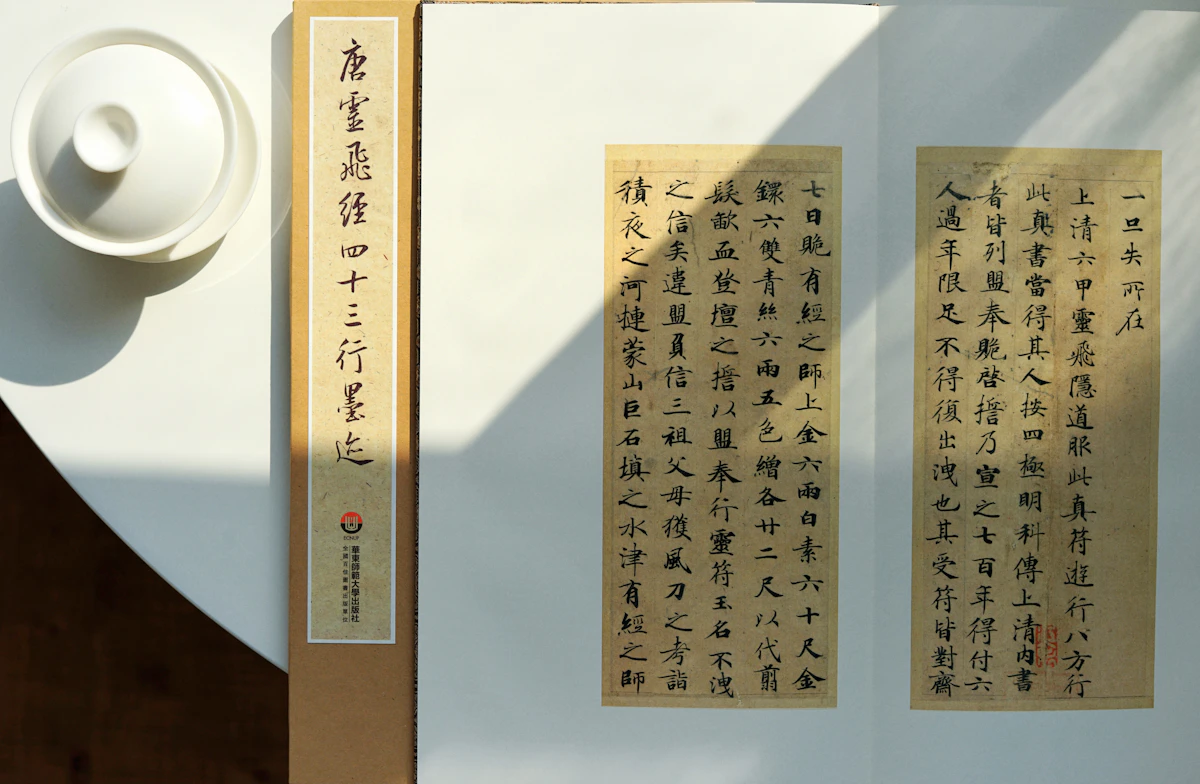 唐靈飛經四十三行墨迹
ECNUP
華東師範大學出版社
全國百佳圖書出版單位
一旦失所在
上清六甲靈飛隱道服此真符遊行八方行
此真書當得其人按四極明科傳上清內書
者皆列盟奉貺啓誓乃宣之七百年得付六
人過年限足不得復出洩也其受符皆對齋
七日貺有經之師上金六兩白素六十尺金
鐶六雙青絲六兩五色繒各廿二尺以代翦
髮歃血登壇之誓以盟奉行靈符玉名不洩
之信矣違盟負信三祖父母獲風刀之考詣
積夜之河摙蒙山巨石填之水津有經之師